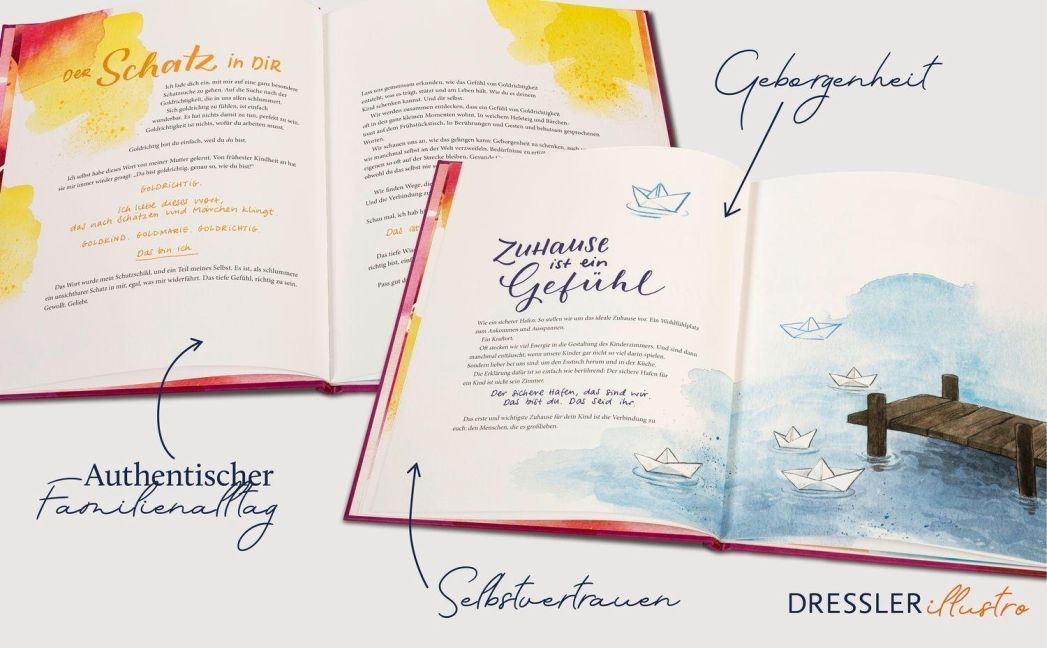 DER Schatz in DIR
Ich lade dich ein, mit mir auf eine ganz besondere
Schatzsuche zu gehen. Auf die Suche nach der
Goldrichtigkeit, die in uns allen schlummert.
Sich goldrichtig zu fühlen, ist einfach
wunderbar. Es hat nichts damit zu tun, perfekt zu sein.
Goldrichtigkeit ist nichts, wofür du arbeiten musst.
Goldrichtig bist du einfach, weil du du bist.
Ich selbst habe dieses Wort von meiner Mutter gelernt. Von frühester Kindheit an hat
sie mir immer wieder gesagt: „Du bist goldrichtig, genau so, wie du bist!“
GOLDRICHTIG.
Ich liebe dieses Wort,
das nach Schätzen und Märchen klingt.
GOLDKIND. GOLDMARIE. GOLDRICHTIG.
Das bin ich.
Das Wort wurde mein Schutzschild, und ein Teil meines Selbst. Es ist, als schlummere
ein unsichtbarer Schatz in mir, egal, was mir widerfährt. Das tiefe Gefühl, richtig zu sein.
Gewollt. Geliebt.
Lass uns gemeinsam erkunden, wie das Gefühl von Goldrichtigkeit
entsteht, was es trägt, stützt und am Leben hält. Wie du es deinem
Kind schenken kannst. Und dir selbst.
Wir werden zusammen entdecken, dass ein Gefühl von Goldrichtigkeit
oft in den ganz kleinen Momenten wohnt. In weichem Hefeteig und Bärchen-
toast auf dem Frühstückstisch. In Berührungen und Gesten und behutsam gesprochenen
Worten.
Wir schauen uns an, wie das gelingen kann: Geborgenheit zu schenken, auch
wir manchmal selbst an der Welt verzweifeln. Bedürfnisse zu
eigenen so oft auf der Strecke bleiben.
obwohl du das selbst nie
Wir finden Wege, die
Und die Verbindung zu
Schau mal, ich hab h
Das ist
Das tiefe Wis
richtig bist, einfach
Pass gut d
Geborgenheit
ZUHAUSE
ist ein
Gefühl
Wie ein sicherer Hafen: So stellen wir uns das ideale Zuhause vor. Ein Wohlfühlplatz
zum Ankommen und Ausspannen.
Ein Kraftort.
Oft stecken wir viel Energie in die Gestaltung des Kinderzimmers. Und sind dann
manchmal enttäuscht, wenn unsere Kinder gar nicht so viel darin spielen.
Sondern lieber bei uns sind: um den Esstisch herum und in der Küche.
Die Erklärung dafür ist so einfach wie berührend: Der sichere Hafen für
ein Kind ist nicht sein Zimmer.
Der sichere Hafen, das sind wir.
Das bist du. Das seid ihr.
Das erste und wichtigste Zuhause für dein Kind ist die Verbindung zu
euch: den Menschen, die es großlieben.
Authentischer
Familienalltag
Selbstvertrauen
DRESSLER illustro